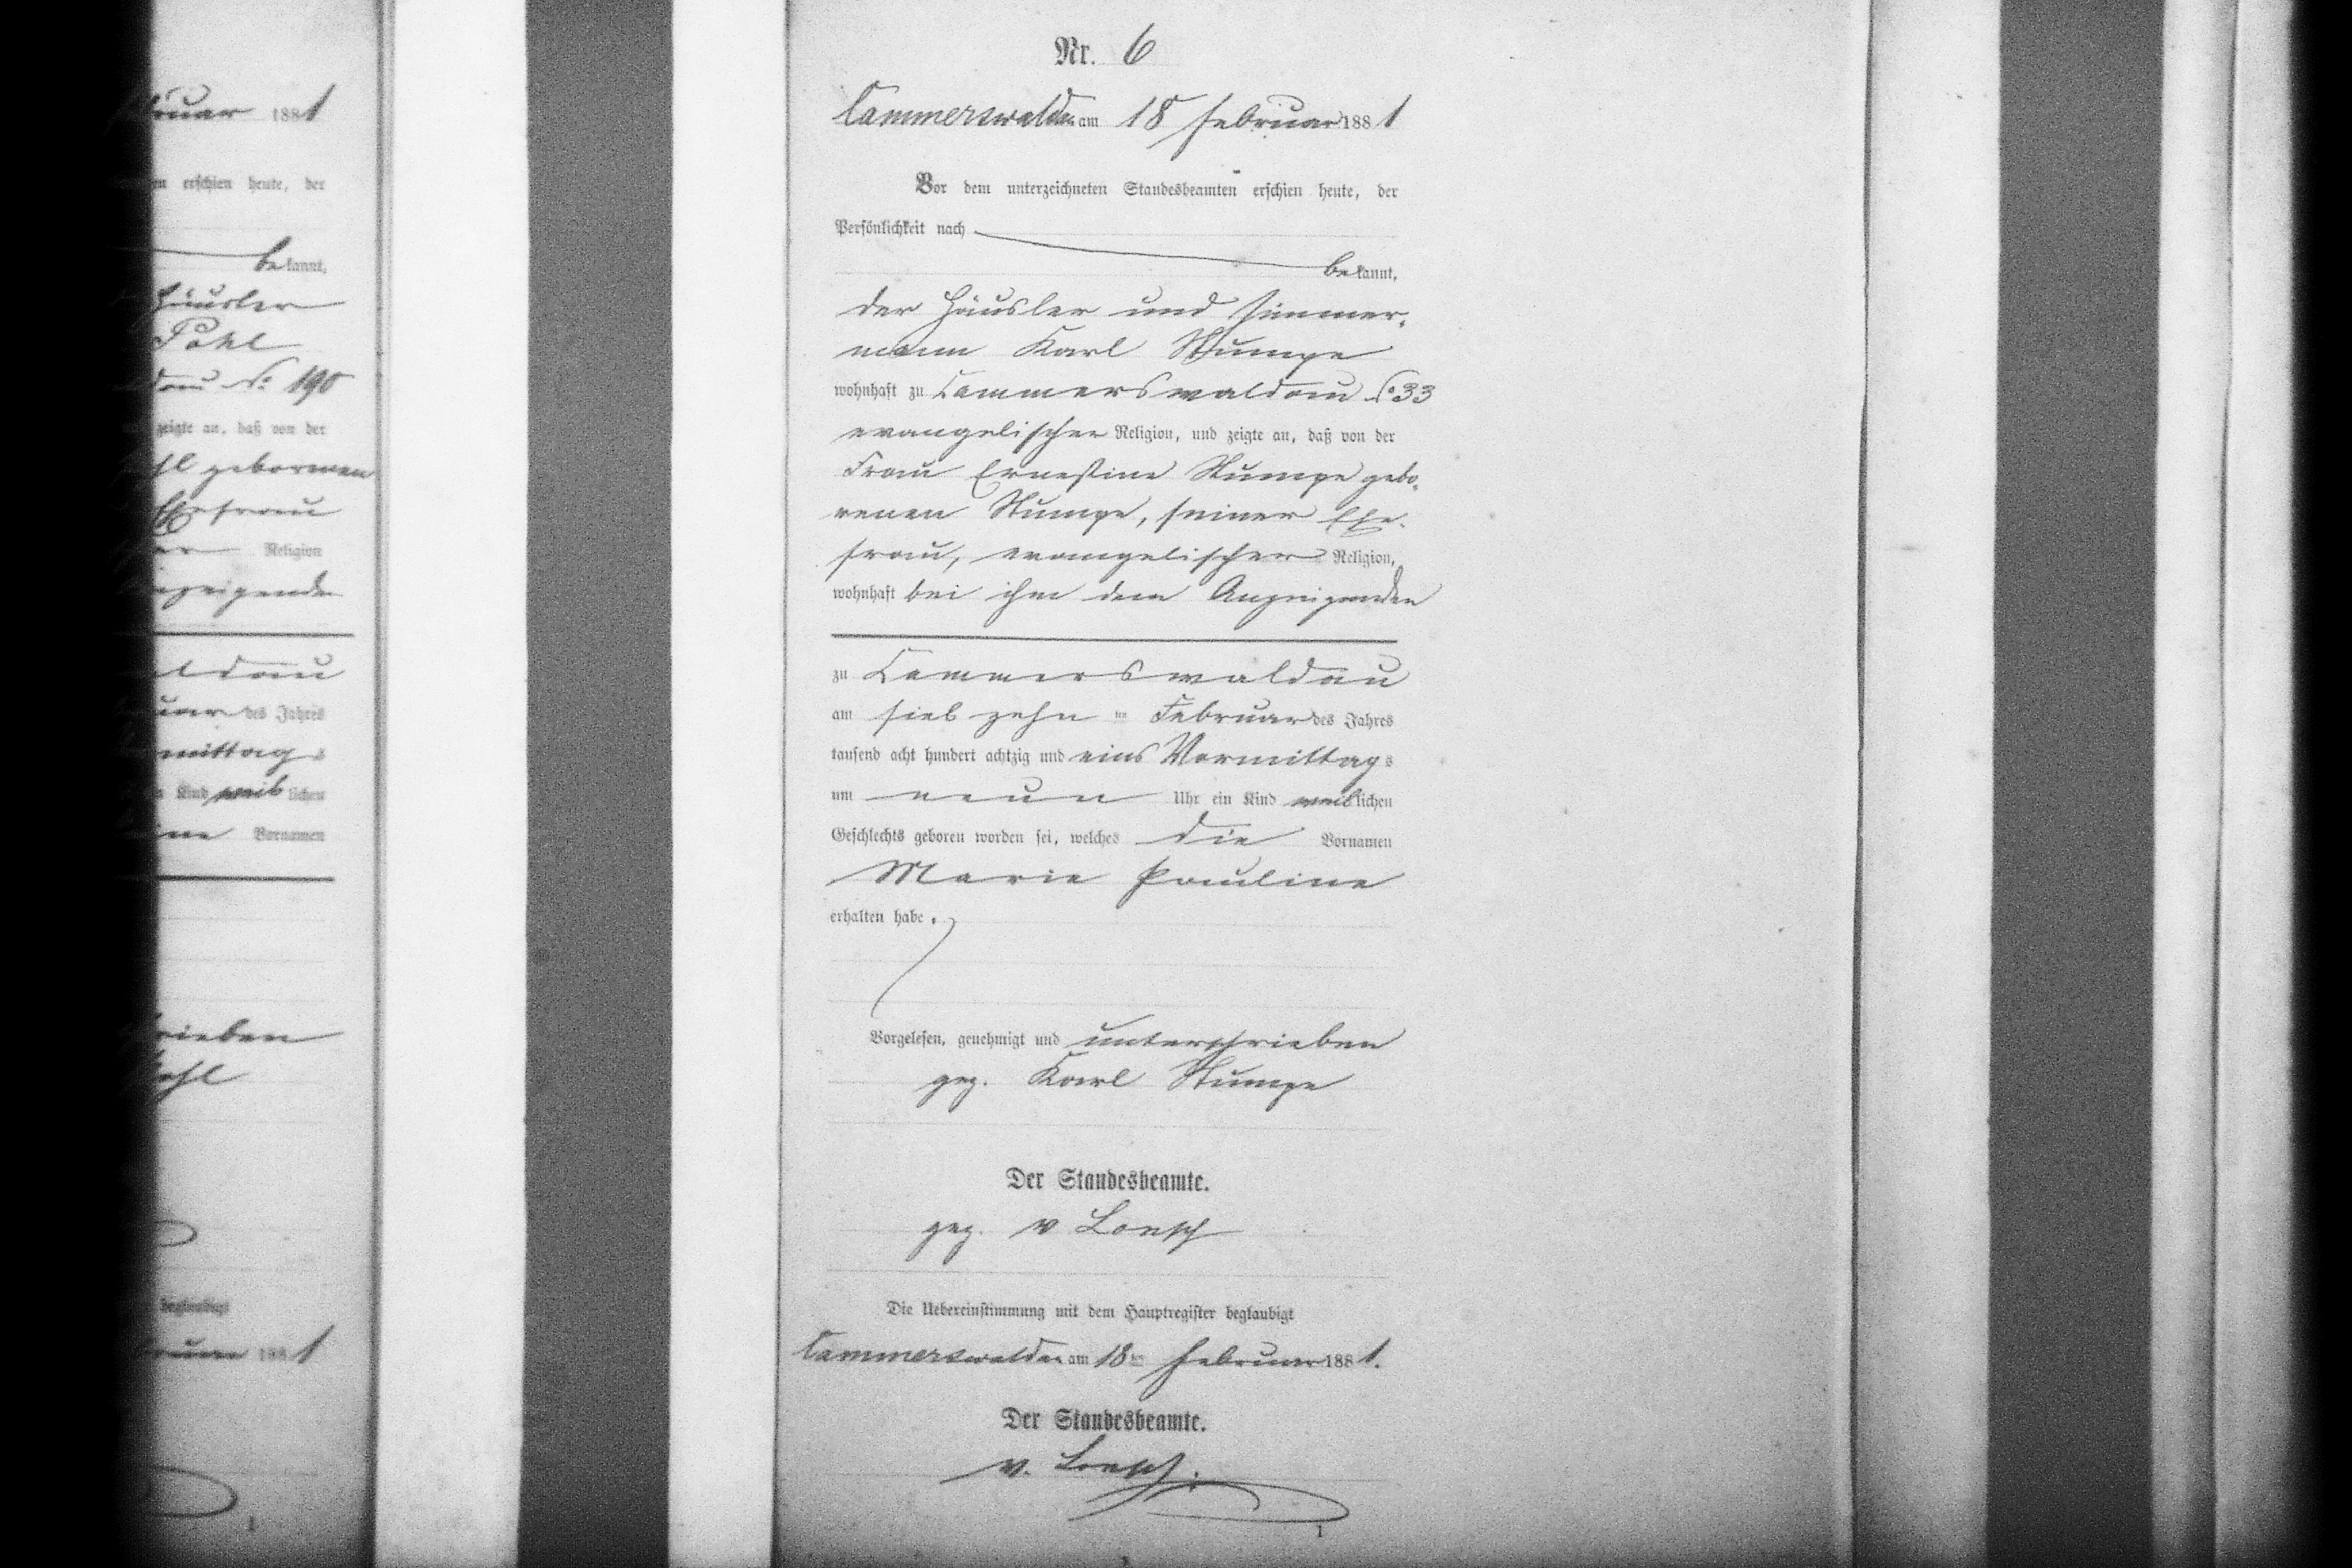 bruar 1881
en erschien heute, der
bekannt,
Häusler
Pohl
dau No 190
zeigte an, daß von der
hl geborenen
Ehefrau
Religion
nzeigenden
ldau
uar des Jahres
mittags
Kind weiblichen
Vornamen
rieben
ohl
beglaubigt
bruar 1881
1
Nr. 6
Cammerswaldau am 18 Februar 1881
Vor dem unterzeichneten Standesbeamten erschien heute, der
Persönlichkeit nach
bekannt,
der Häusler und Zimmer-
mann Karl Stumpe
wohnhaft zu Cammerswaldau No 33
evangelischer Religion, und zeigte an, daß von der
Frau Ernestine Stumpe gebo-
renen Stumpe, seiner Ehe-
frau, evangelischer Religion,
wohnhaft bei ihm dem Anzeigenden
zu Cammerswaldau
am siebzehn ten Februar des Jahres
tausend acht hundert achtzig und eins Vormittags
um neun Uhr ein Kind weiblichen
Geschlechts geboren worden sei, welches die Vornamen
Marie Pauline
erhalten habe.
Vorgelesen, genehmigt und unterschrieben
gez. Karl Stumpe
Der Standesbeamte.
gez. v Loesch
Die Uebereinstimmung mit dem Hauptregister beglaubigt
Cammerswaldau am 18ten Februar 1881.
Der Standesbeamte.
v. Loesch.
1